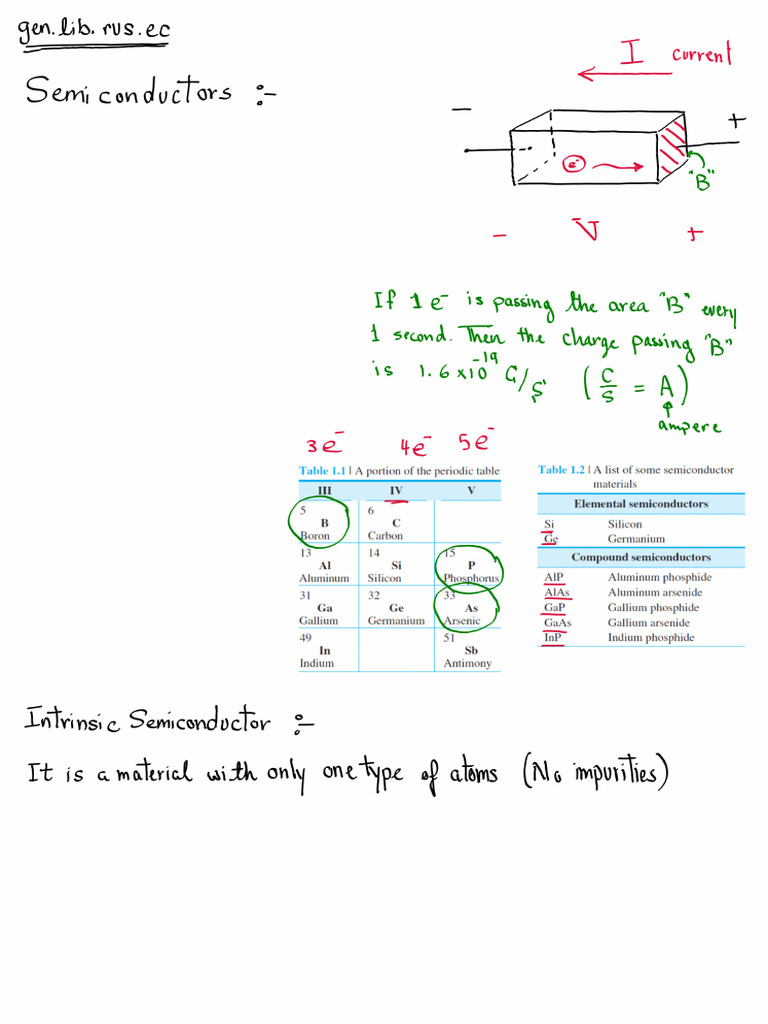 gen.lib.rus.ec
Semiconductors :-
I current
- +
e-
"B"
- V +
If 1 e- is passing the area "B" every
1 second. Then the charge passing "B"
is 1.6 x10^-19 C/S ( C/S = A )
ampere
3e- 4e- 5e-
Table 1.1 | A portion of the periodic table
III IV V
5 6
B C
Boron Carbon
13 14 15
Al Si P
Aluminum Silicon Phosphorus
31 32 33
Ga Ge As
Gallium Germanium Arsenic
49 51
In Sb
Indium Antimony
Table 1.2 | A list of some semiconductor
materials
Elemental semiconductors
Si Silicon
Ge Germanium
Compound semiconductors
AlP Aluminum phosphide
AlAs Aluminum arsenide
GaP Gallium phosphide
GaAs Gallium arsenide
InP Indium phosphide
Intrinsic Semiconductor :-
It is a material with only one type of atoms (No impurities)